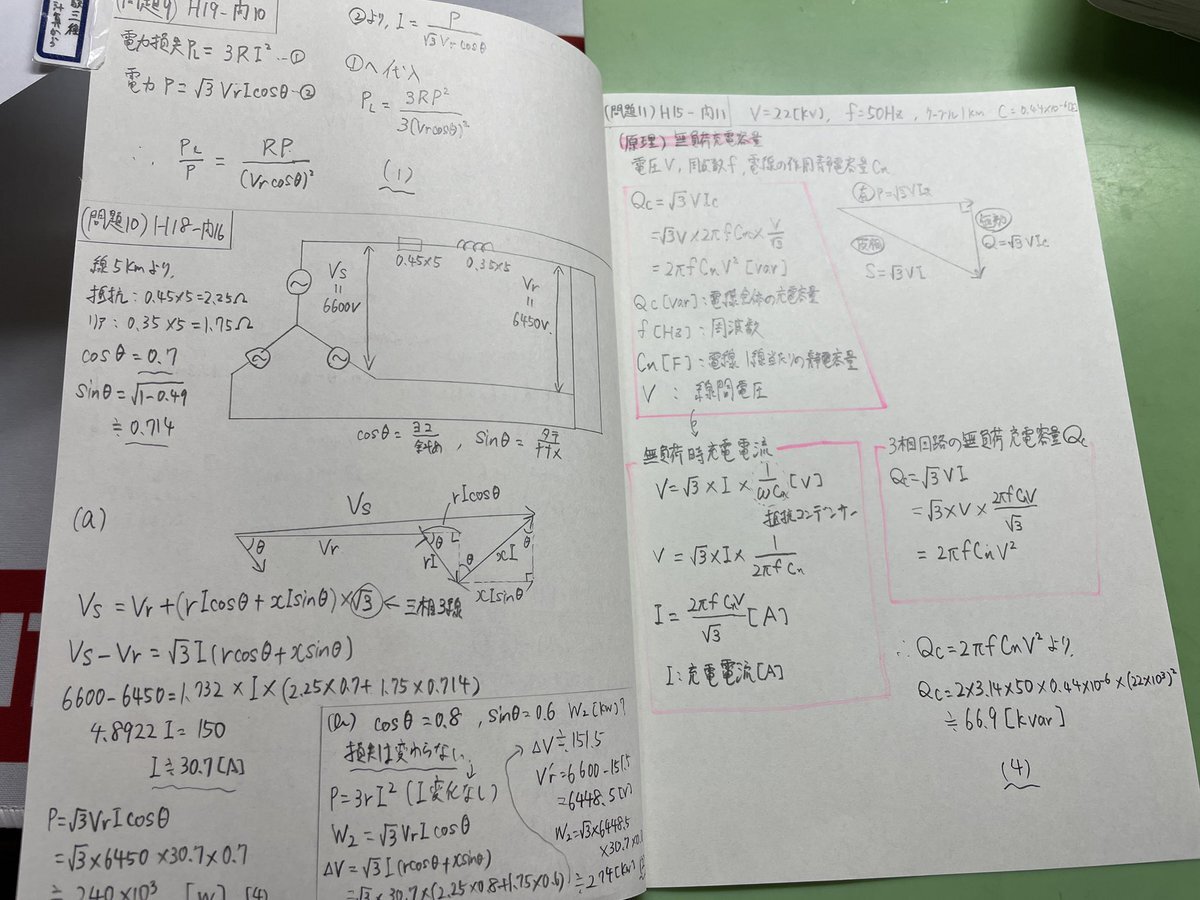 (問題9) H19-内10
電力損失PL = 3RI² …①
電力 P = √3 VrIcosθ …②
②より, I = P / √3Vrcosθ
①へ代入
PL = 3RP² / 3(Vrcosθ)²
∴ PL/P = RP / (Vrcosθ)²
(1)
(問題10) H18-内16
線5kmより,
抵抗: 0.45×5=2.25Ω
リア: 0.35×5=1.75Ω
cosθ = 0.7
sinθ = √1-0.49
≒ 0.714
Vs = 6600V
0.45×5
0.35×5
Vr = 6450V
cosθ = ヨコ/ナナメ, sinθ = タテ/ナナメ
(a)
Vs
rIcosθ
θ
Vr
rI
θ
θ
xI
θ
xIsinθ
Vs = Vr+(rIcosθ+xIsinθ)×√3 ← 三相3線
Vs-Vr = √3I(rcosθ+xsinθ)
6600-6450=1.732×I×(2.25×0.7+1.75×0.714)
4.8922I = 150
I≒30.7[A]
P=√3VrIcosθ
=√3×6450×30.7×0.7
≒240×10³ [W] (4)
cosθ=0.8, sinθ=0.6 W2[kW]?
損失は変わらない
P=3rI² (I変化なし)
W2=√3VrIcosθ
ΔV=√3I(rcosθ+xsinθ)
=√3×30.7×(2.25×0.8+1.75×0.6)
ΔV≒151.5
Vr'=6600-151.5
=6448.5[V]
W2=√3×6448.5
×30.7×0.
≒274[kW]
(問題11) H15-内11 V=22[kV], f=50Hz, ケーブル1km C=0.44×10⁻⁶
(原理) 無負荷充電容量
電圧V, 周波数f, 電線の作用静電容量Cn
Qc=√3VIc
=√3V×2πfCn×V/√3
=2πfCnV² [var]
Qc[var]: 電線全体の充電容量
f[Hz]: 周波数
Cn[F]: 電線1線当たりの静電容量
V : 線間電圧
P=√3VIR
無効
Q=√3VIc
皮相
S=√3VI
無負荷時充電電流
V=√3×I×1/ωCn[V]
抵抗コンデンサー
V=√3×I×1/2πfCn
I=2πfCnV/√3[A]
I:充電電流[A]
3相回路の無負荷充電容量Qc
Qc=√3VI
=√3×V×2πfCnV/√3
=2πfCnV²
∴Qc=2πfCnV²より,
Qc=2×3.14×50×0.44×10⁻⁶×(22×10³)²
≒66.9[kvar]
(4)